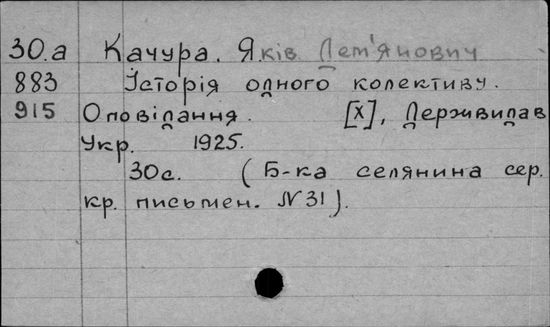 30.а Качура. Яків Дем'янович
883 Історія одного колективу.
915 Оповідання. [Х], Держвидав
Укр. 1925.
30с. (Б-ка селянина сер.
кр. письмен. №31).